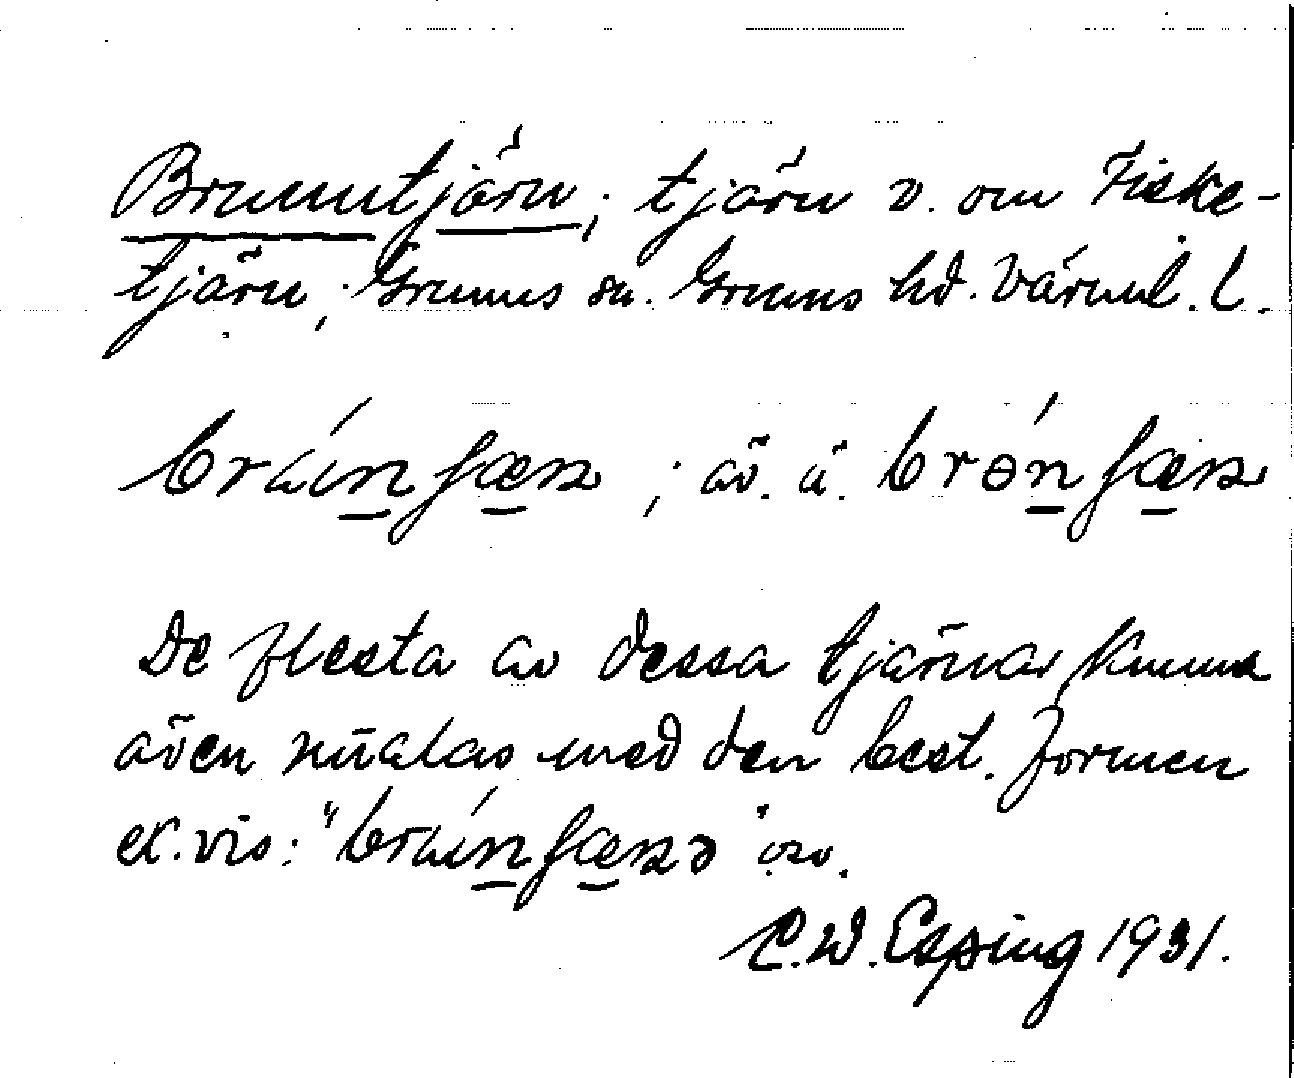 Brunntjärn; tjärn v. om Fiske-
tjärn, Grums sn. Grums hd. Värml. l.
; äv. å.
De flesta av dessa tjärnar kunna
även nämnas med den best. formen
ex.vis: osv.
C.W. Esping 1931.